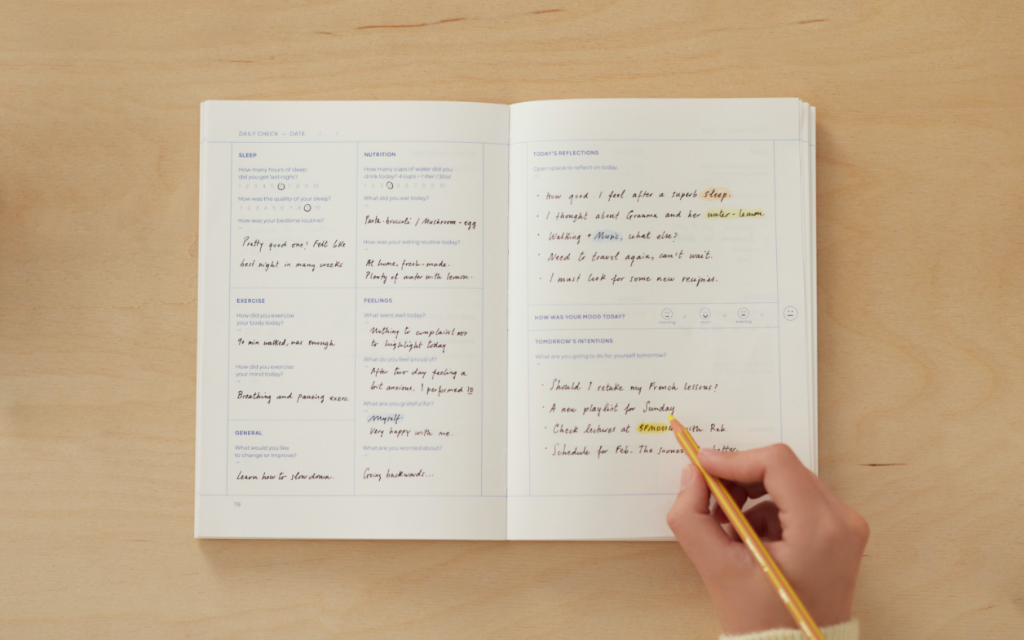 DAILY CHECK — DATE
SLEEP
How many hours of sleep
did you get last night?
1 2 3 4 5 6 7 8 9 10
How was the quality of your sleep?
1 2 3 4 5 6 7 8 9 10
How was your bedtime routine?
Pretty good one! Felt like
best night in many weeks
EXERCISE
How did you exercise
your body today?
90 min walked, was enough
How did you exercise
your mind today?
Breathing and pausing
GENERAL
What would you like
to change or improve?
Learn how to slow down.
NUTRITION
How many cups of water did you
drink today?
What did you eat today?
Pasta-broccoli / Mushroom-egg
How was your eating routine today?
At home, fresh-made.
Plenty of water with lemon.
FEELINGS
What went well today?
Nothing to complaint nor
to highlight today
What do you feel proud of?
After two day feeling a
bit anxious. I performed
What are you grateful for?
Myself
Very happy with me.
What are you worried about?
Going backwards...
TODAY'S REFLECTIONS
Open space to reflect on today.
· How good I feel after a superb sleep.
· I thought about Gramma and her water-lemon
· Walking + Music, what else?
· Need to travel again, can't wait.
· I must look for some new recipies.
HOW WAS YOUR MOOD TODAY?
morning noon evening
TOMORROW'S INTENTIONS
What are you going to do for yourself tomorrow?
· Should I retake my French lessons?
· A new playlist for Sunday
· Check lectures at with Rah
· Schedule for Feb. The better